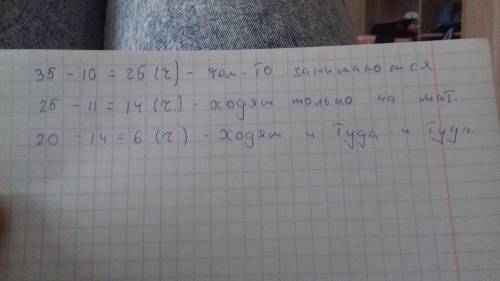 35 - 10 = 25 (ч) - чем-то занимаются
25 - 11 = 14 (ч.) - ходят только на мат.
20 - 14 = 6 (ч.) - ходят и туда и туда.